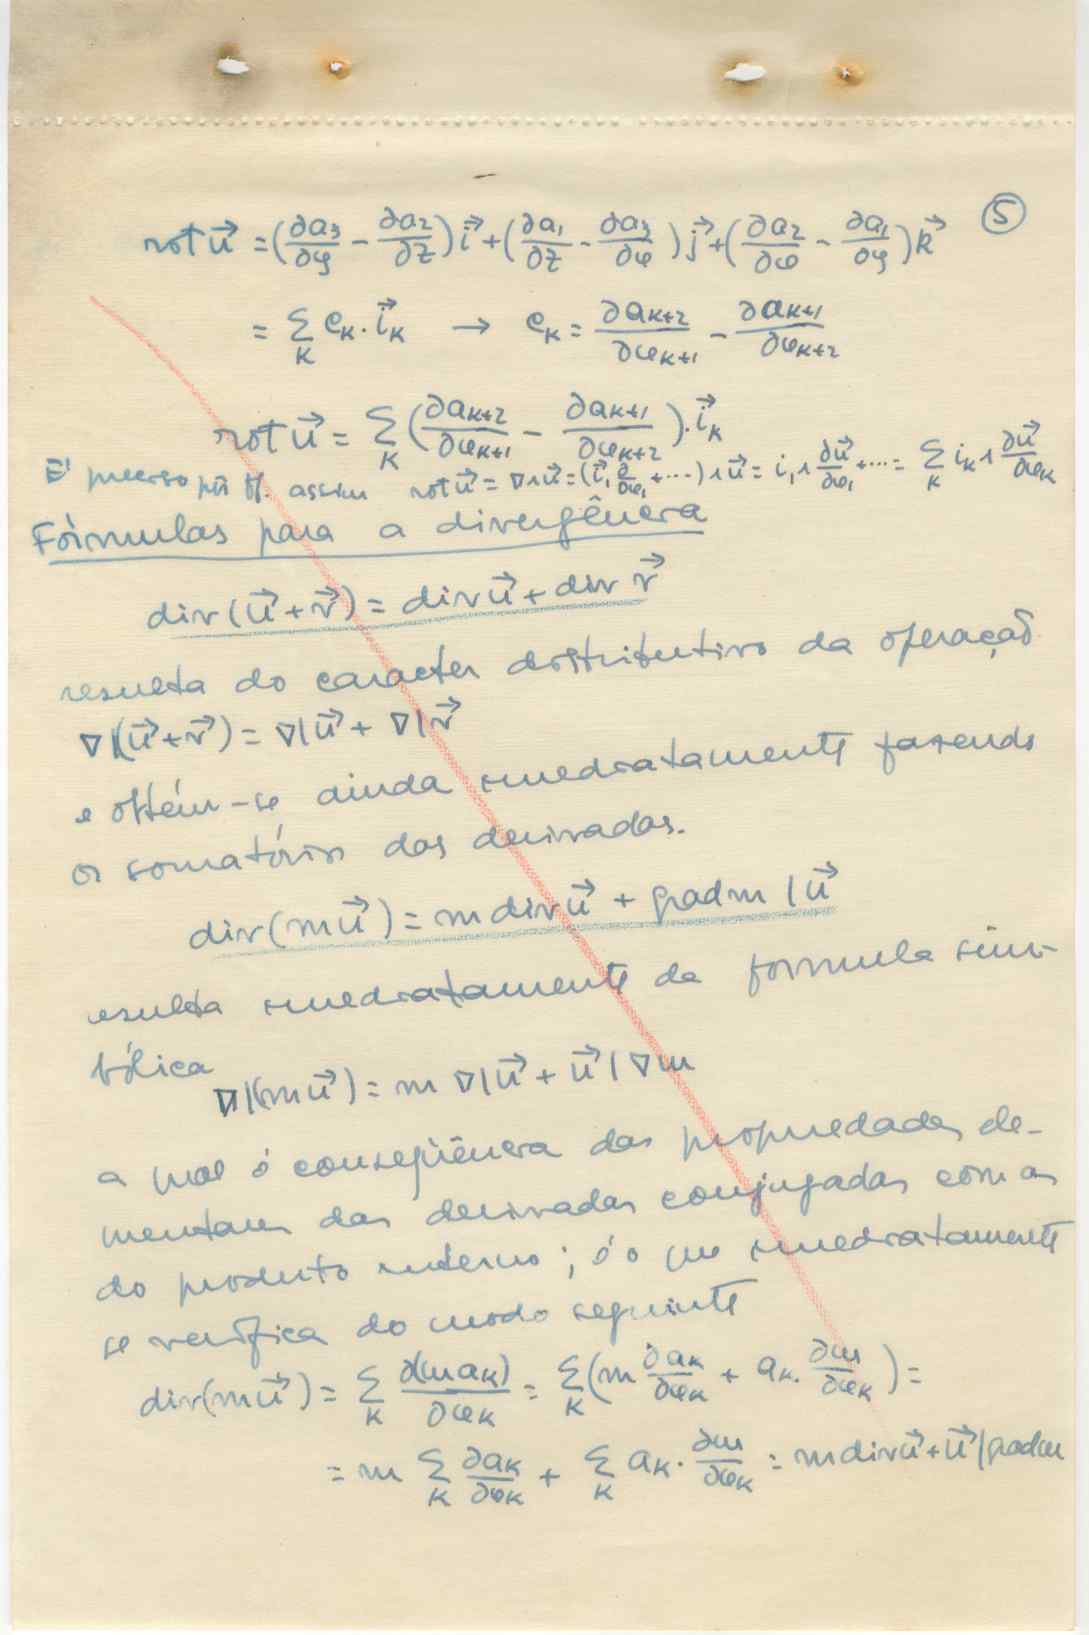 ⑤
rot u⃗ = (∂a₃/∂y − ∂a₂/∂z) i⃗ + (∂a₁/∂z − ∂a₃/∂x) j⃗ + (∂a₂/∂x − ∂a₁/∂y) k⃗
= Σ_K c_K . i⃗_K → c_K = ∂a_{K+2}/∂x_{K+1} − ∂a_{K+1}/∂x_{K+2}
rot u⃗ = Σ_K (∂a_{K+2}/∂x_{K+1} − ∂a_{K+1}/∂x_{K+2}) . i⃗_K
É preciso pôr assim rot u⃗ = ∇∧u⃗ = (i⃗₁ ∂/∂x₁ + ....) ∧ u⃗ = i₁ ∧ ∂u⃗/∂x₁ + ... = Σ_K i_K ∧ ∂u⃗/∂x_K
Fórmulas para a divergência
div(u⃗ + v⃗) = div u⃗ + div v⃗
resulta do caracter distributivo da operação
∇|(u⃗ + v⃗) = ∇|u⃗ + ∇|v⃗
e obtém-se ainda imediatamente fazendo
os somatórios das derivadas.
div(m u⃗) = m div u⃗ + grad m | u⃗
resulta imediatamente da formula sim-
bólica
∇|(m u⃗) = m ∇|u⃗ + u⃗ | ∇m
a qual é conseqüência das propriedades ele-
mentares das derivadas conjugadas com as
do produto interno ; é o que imediatamente
se verifica do modo seguinte
div(m u⃗) = Σ_K ∂(m a_K)/∂x_K = Σ_K (m ∂a_K/∂x_K + a_K . ∂m/∂x_K) =
= m Σ_K ∂a_K/∂x_K + Σ_K a_K . ∂m/∂x_K = m div u⃗ + u⃗ | grad m